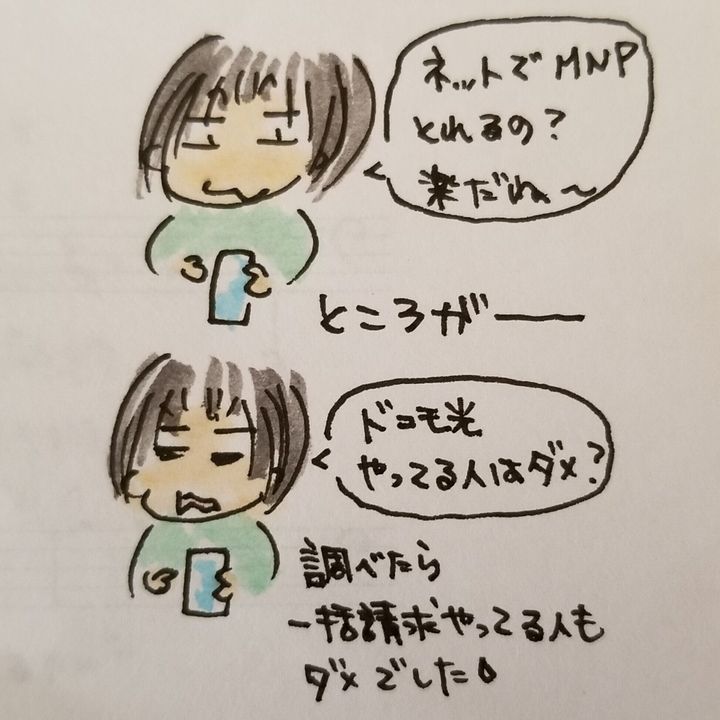 ネットでMNP
とれるの?
楽だね〜
ところが——
ドコモ光
やってる人はダメ?
調べたら
一括請求やってる人も
ダメでした